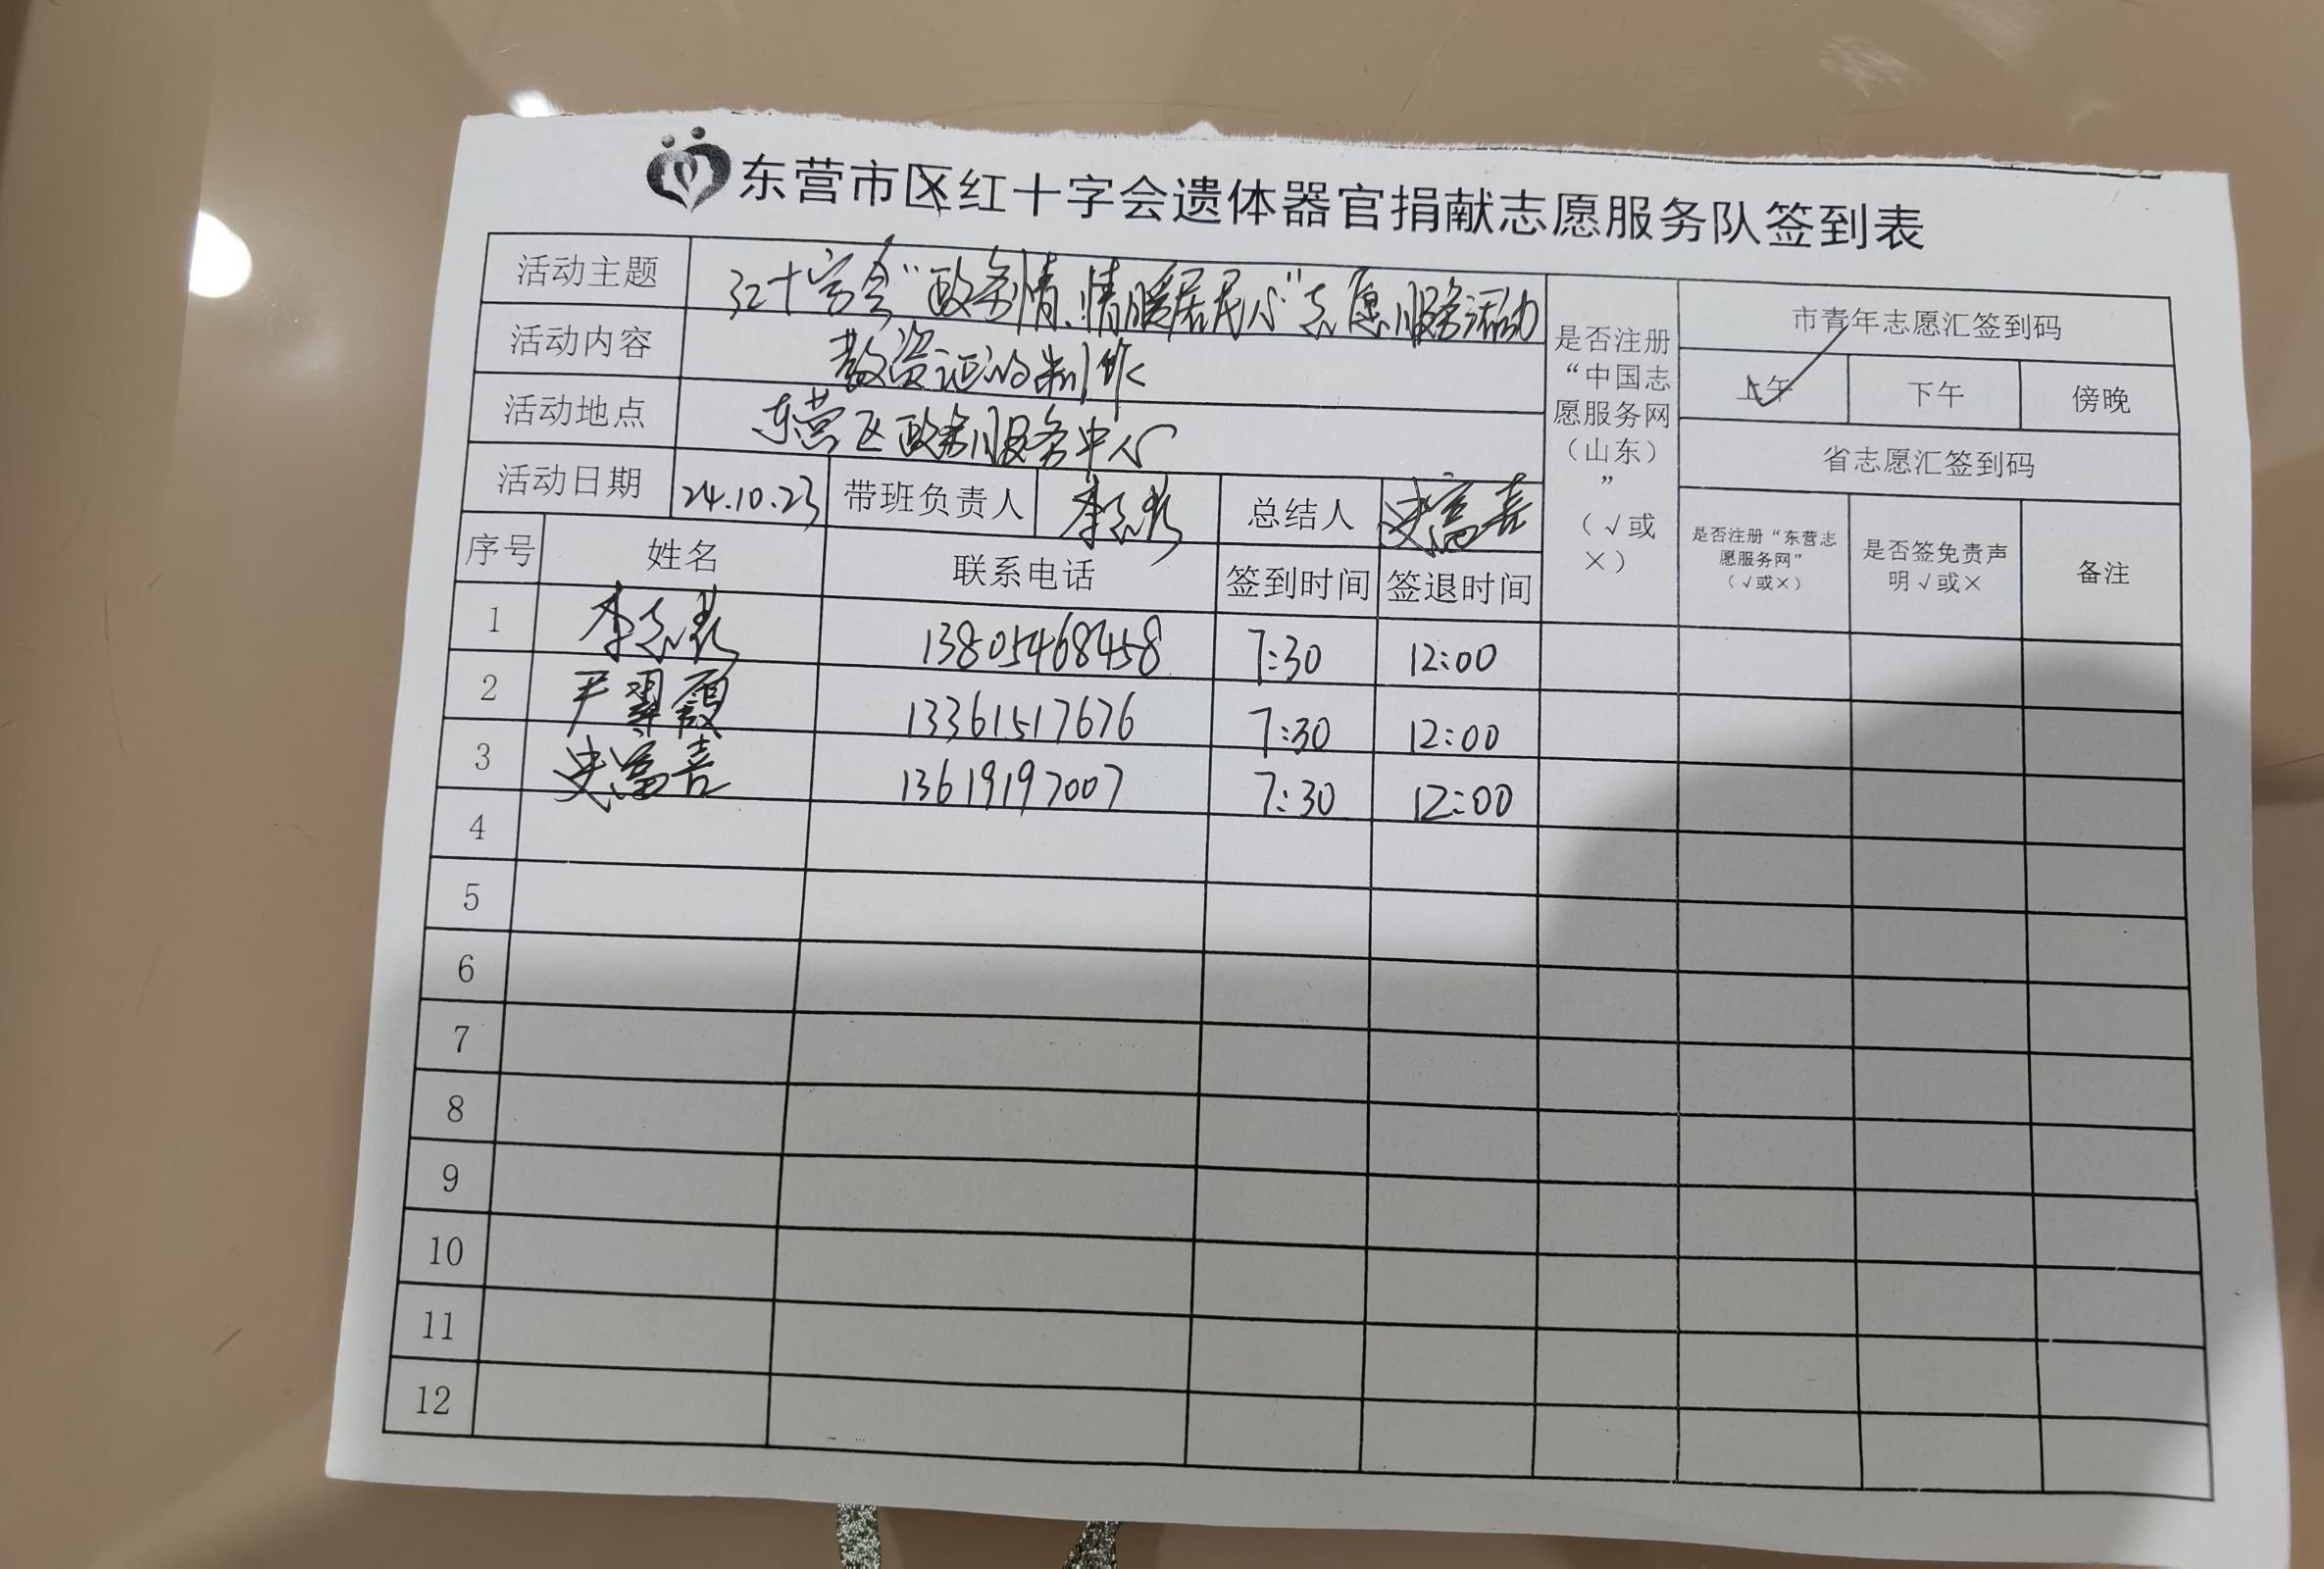 东营市区红十字会遗体器官捐献志愿服务队签到表
活动主题 红十字会“政务情、情暖居民心”志愿服务活动
活动内容 教资证的制作
活动地点 东营区政务服务中心
活动日期 24.10.23 带班负责人 李 总结人 史富喜
是否注册
“中国志
愿服务网
（山东）
”
（√或
×）
市青年志愿汇签到码
上午 下午 傍晚
省志愿汇签到码
是否注册“东营志
愿服务网”
（√或×）
是否签免责声
明√或×
备注
序号 姓名 联系电话 签到时间 签退时间
1 李 13805468458 7:30 12:00
2 尹翠霞 13361517676 7:30 12:00
3 史富喜 13619197007 7:30 12:00
4
5
6
7
8
9
10
11
12